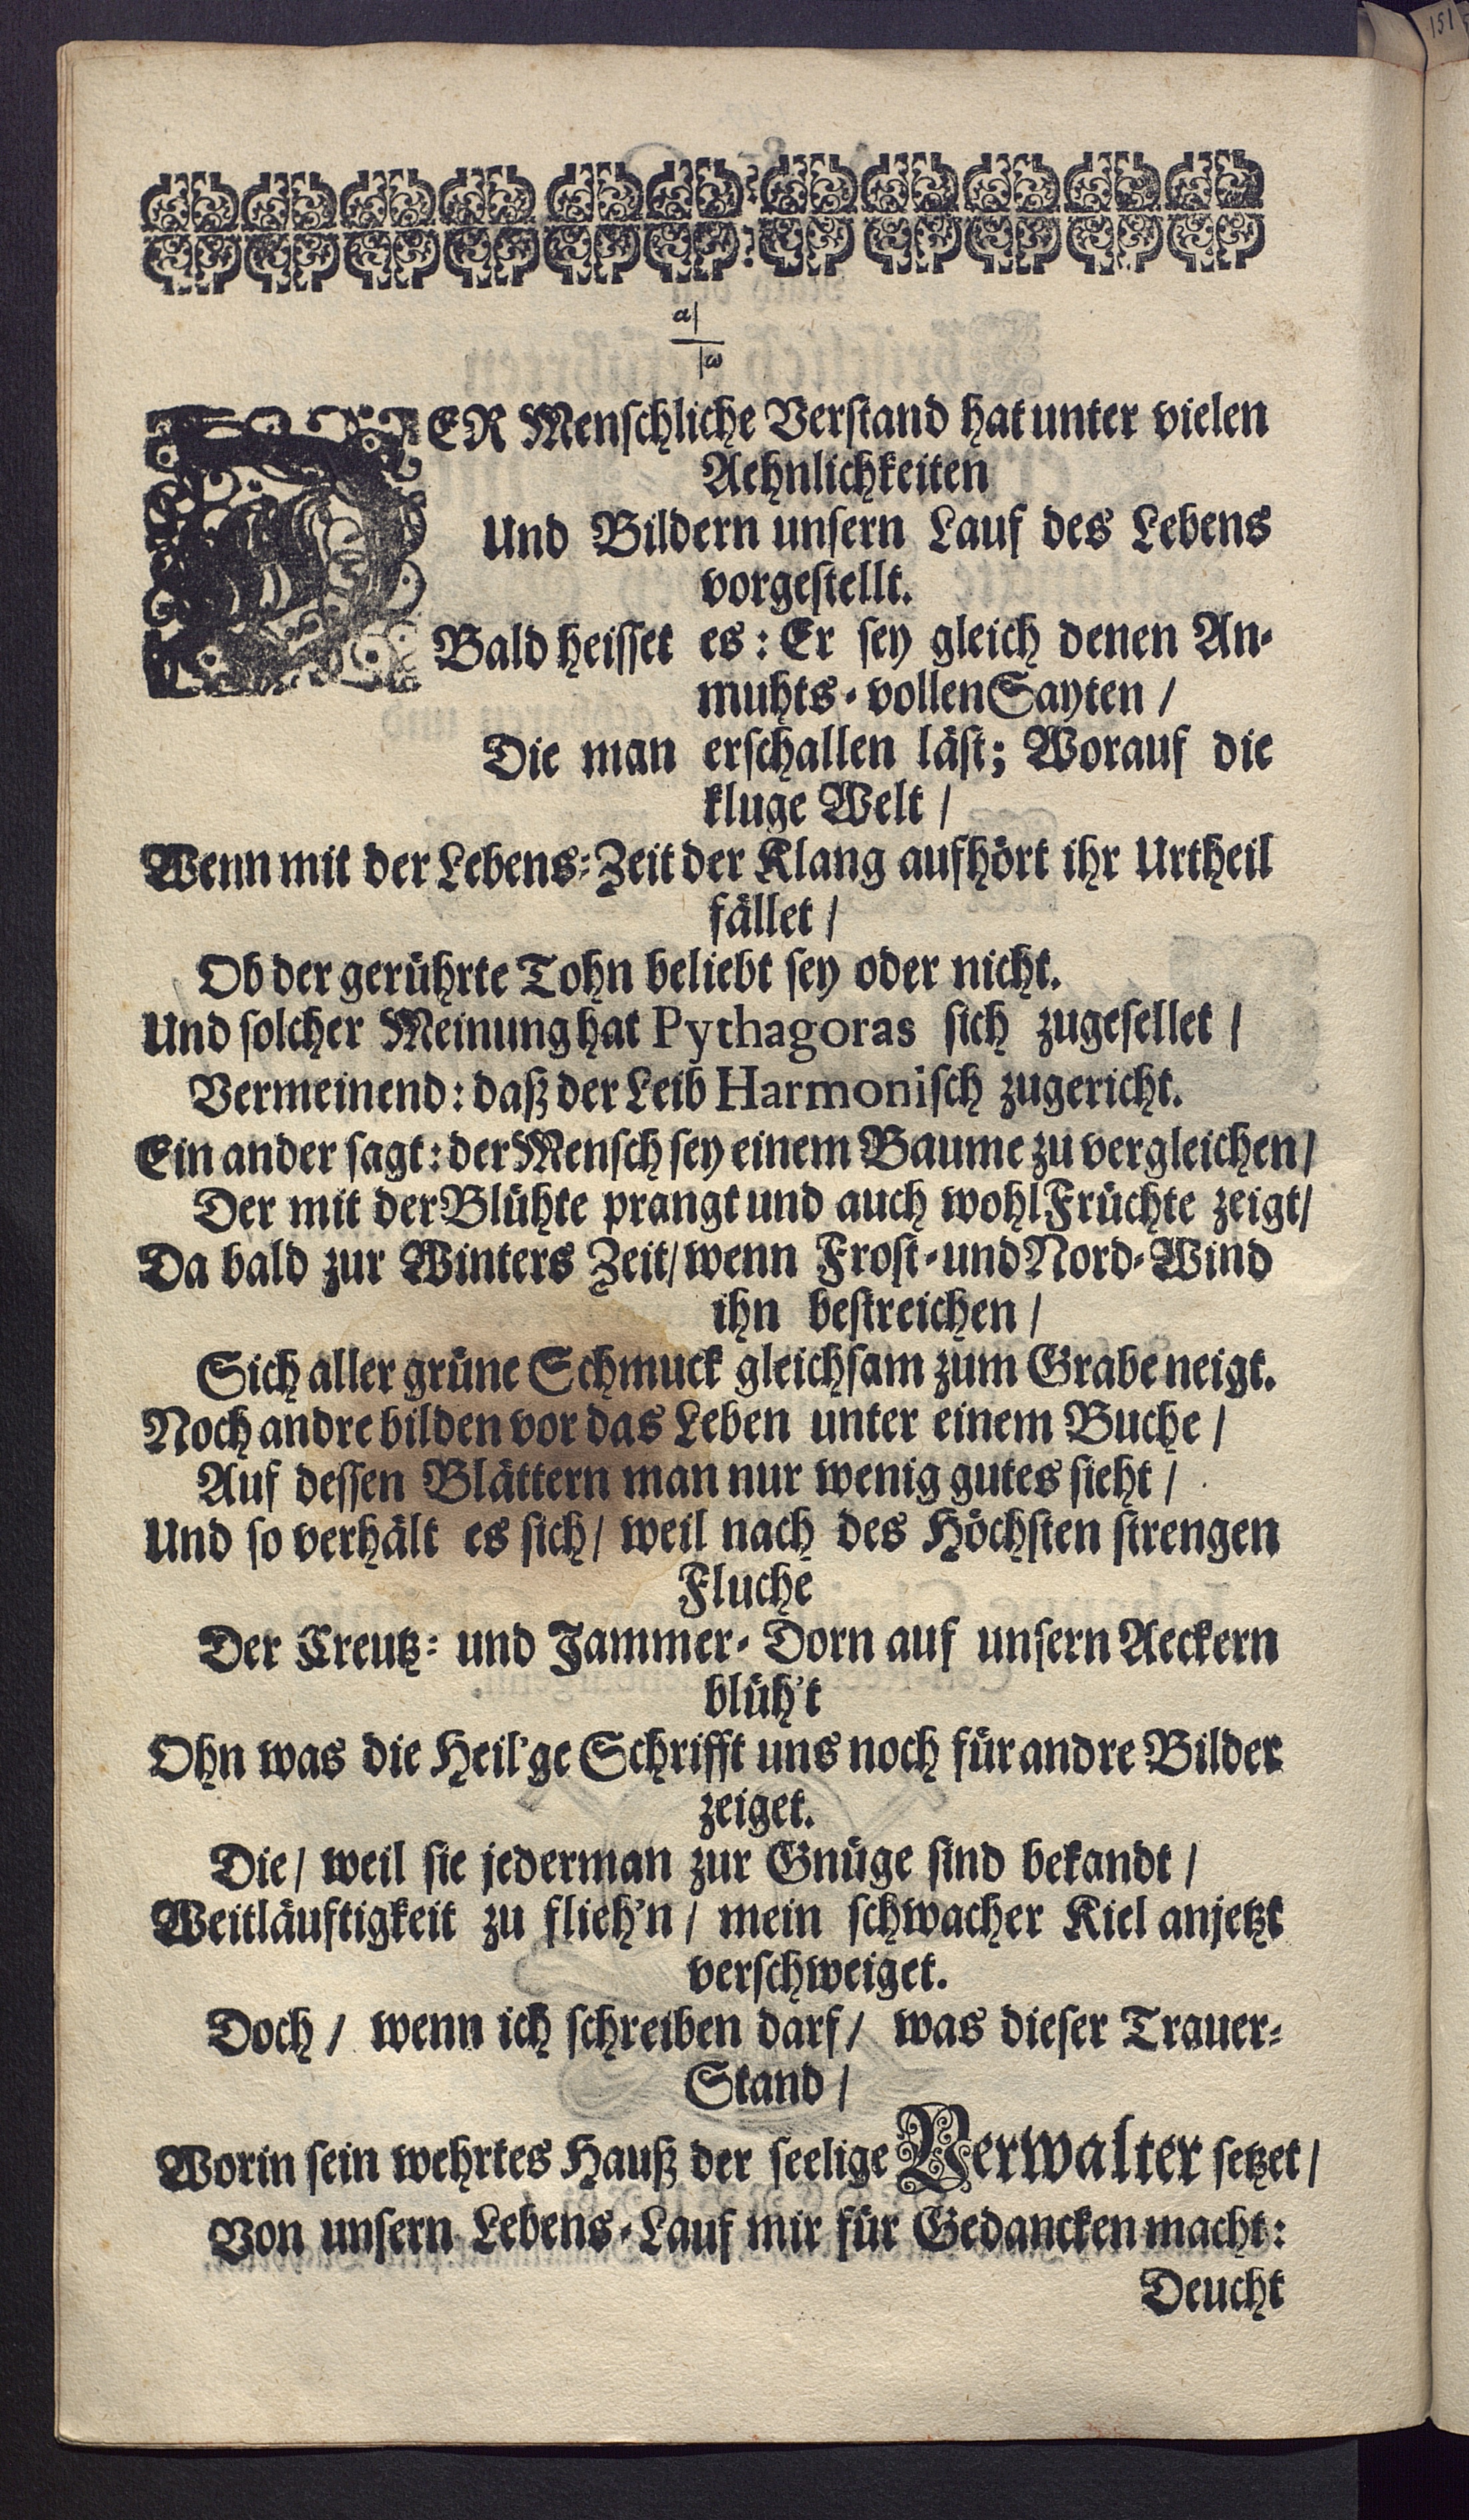 151
a|
|ω
DER Menſchliche Verſtand hat unter vielen
Aehnlichkeiten
Und Bildern unſern Lauf des Lebens
vorgeſtellt.
Bald heiſſet es: Er ſey gleich denen An-
muhts-vollen Sayten /
Die man erſchallen läſt; Worauf die
kluge Welt /
Wenn mit der Lebens-Zeit der Klang aufhört ihr Urtheil
fället /
Ob der gerührte Tohn beliebt ſey oder nicht.
Und ſolcher Meinung hat Pythagoras ſich zugeſellet /
Vermeinend: daß der Leib Harmoniſch zugericht.
Ein ander ſagt: der Menſch ſey einem Baume zu vergleichen /
Der mit der Blühte prangt und auch wohl Früchte zeigt /
Da bald zur Winters Zeit / wenn Froſt-und Nord-Wind
ihn beſtreichen /
Sich aller grüne Schmuck gleichſam zum Grabe neigt.
Noch andre bilden vor das Leben unter einem Buche /
Auf deſſen Blättern man nur wenig gutes ſieht /
Und ſo verhält es ſich / weil nach des Höchſten ſtrengen
Fluche
Der Creutz- und Jammer-Dorn auf unſern Aeckern
blüh't
Ohn was die Heil'ge Schrifft uns noch für andre Bilder
zeiget.
Die / weil ſie jederman zur Gnüge ſind bekandt /
Weitläuftigkeit zu flieh'n / mein ſchwacher Kiel anjetzt
verſchweiget.
Doch / wenn ich ſchreiben darf / was dieſer Trauer-
Stand /
Worin ſein wehrtes Hauß der ſeelige Verwalter ſetzet /
Von unſern Lebens-Lauf mir für Gedancken macht:
Deucht